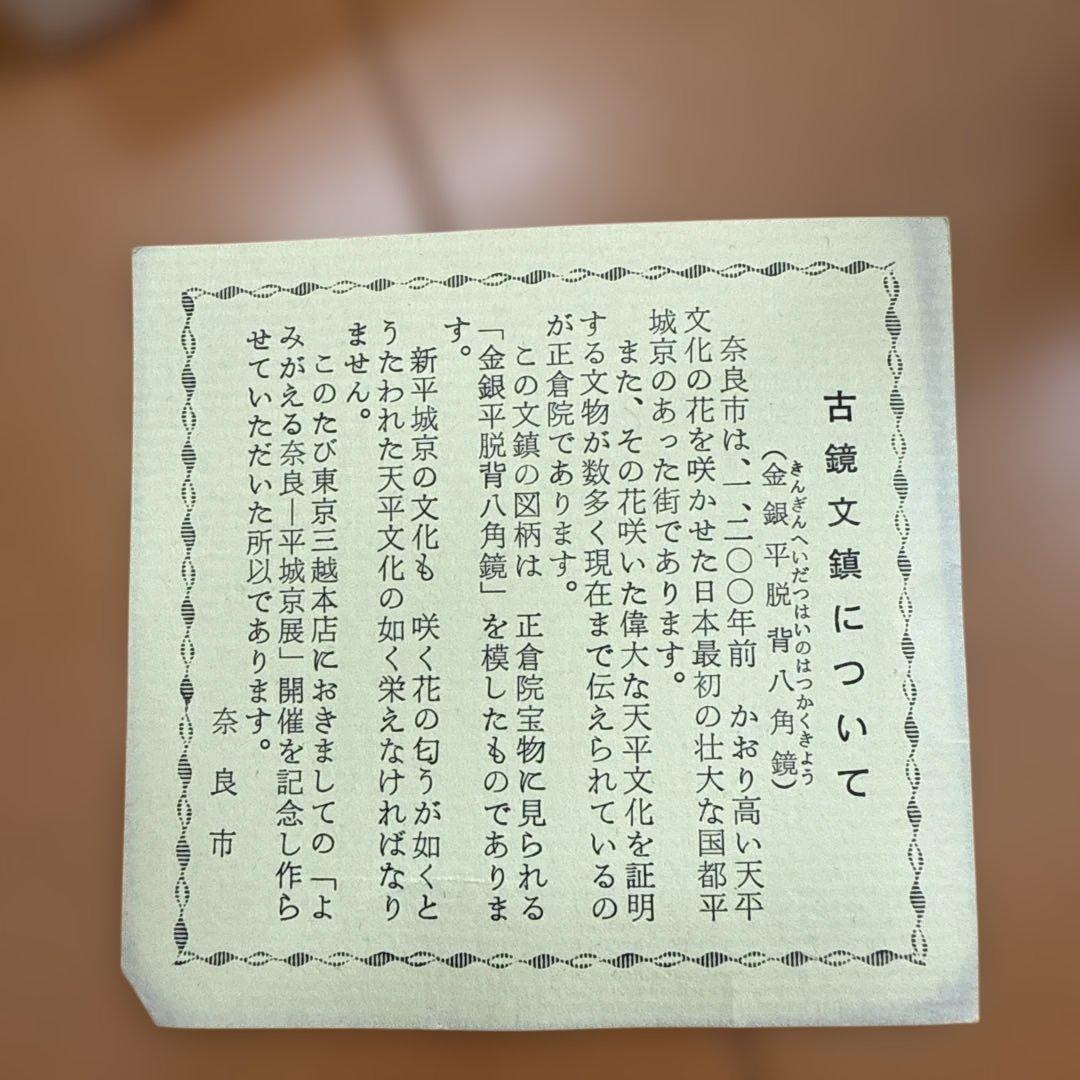 古鏡文鎮について
きんぎんへいだつはいのはつかくきよう
(金銀平脱背八角鏡)
奈良市は、一、二〇〇年前　かおり高い天平
文化の花を咲かせた日本最初の壮大な国都平
城京のあった街であります。
また、その花咲いた偉大な天平文化を証明
する文物が数多く現在まで伝えられているの
が正倉院であります。
この文鎮の図柄は　正倉院宝物に見られる
「金銀平脱背八角鏡」を模したものでありま
す。
新平城京の文化も　咲く花の匂うが如くと
うたわれた天平文化の如く栄えなければなり
ません。
このたび東京三越本店におきましての「よ
みがえる奈良―平城京展」開催を記念し作ら
せていただいた所以であります。
奈良市